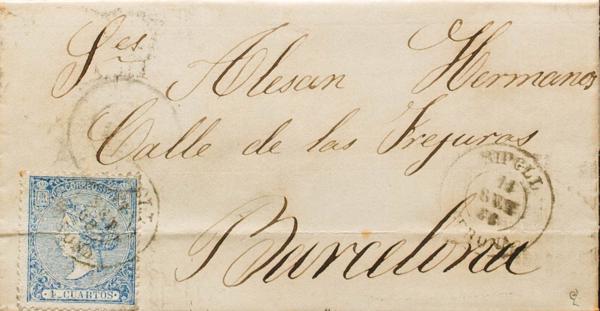 Sres Alesan Hermanos
Calle de las Frejuras
Barcelona
RIPOLL
14
SET
66
GERONA
CORREOS
4 CUARTOS